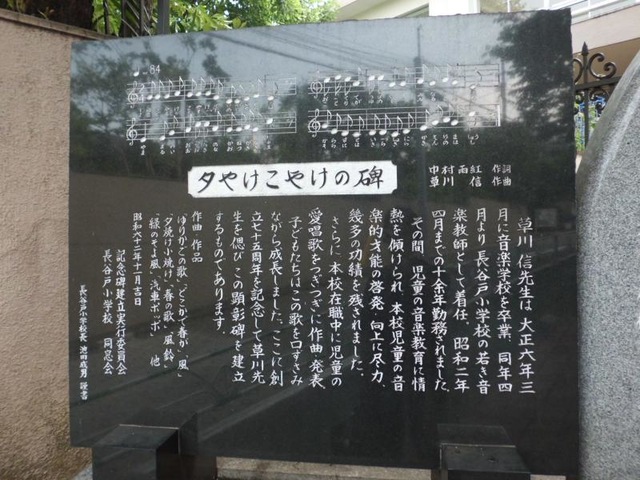 ♩=84
夕やけこやけの碑
作詞 中村雨紅
作曲 草川信
草川 信先生は 大正六年三
月に音楽学校を卒業、同年四
月より 長谷戸小学校の若き音
楽教師として着任、昭和二年
四月までの十余年勤務されました。
その間、児童の音楽教育に情
熱を傾けられ、本校児童の音
楽的才能の啓発・向上に尽力、
幾多の功績を残されました。
さらに、本校在職中に児童の
愛唱歌をつぎつぎに作曲・発表、
子どもたちはこの歌を口ずさみ
ながら成長しました。ここに創
立七十五周年を記念して草川先
生を偲び、この顕彰碑を建立
するものであります。
作曲 作品
「ゆりかごの歌」「どこかで春が」「風」
「夕焼け小焼け」「春の歌」「風鈴」
「緑のそよ風」「汽車ポッポ」 他
昭和六十三年十一月吉日
記念碑建立実行委員会
長谷戸小学校 同窓会
長谷戸小学校長 池田威男 謹書